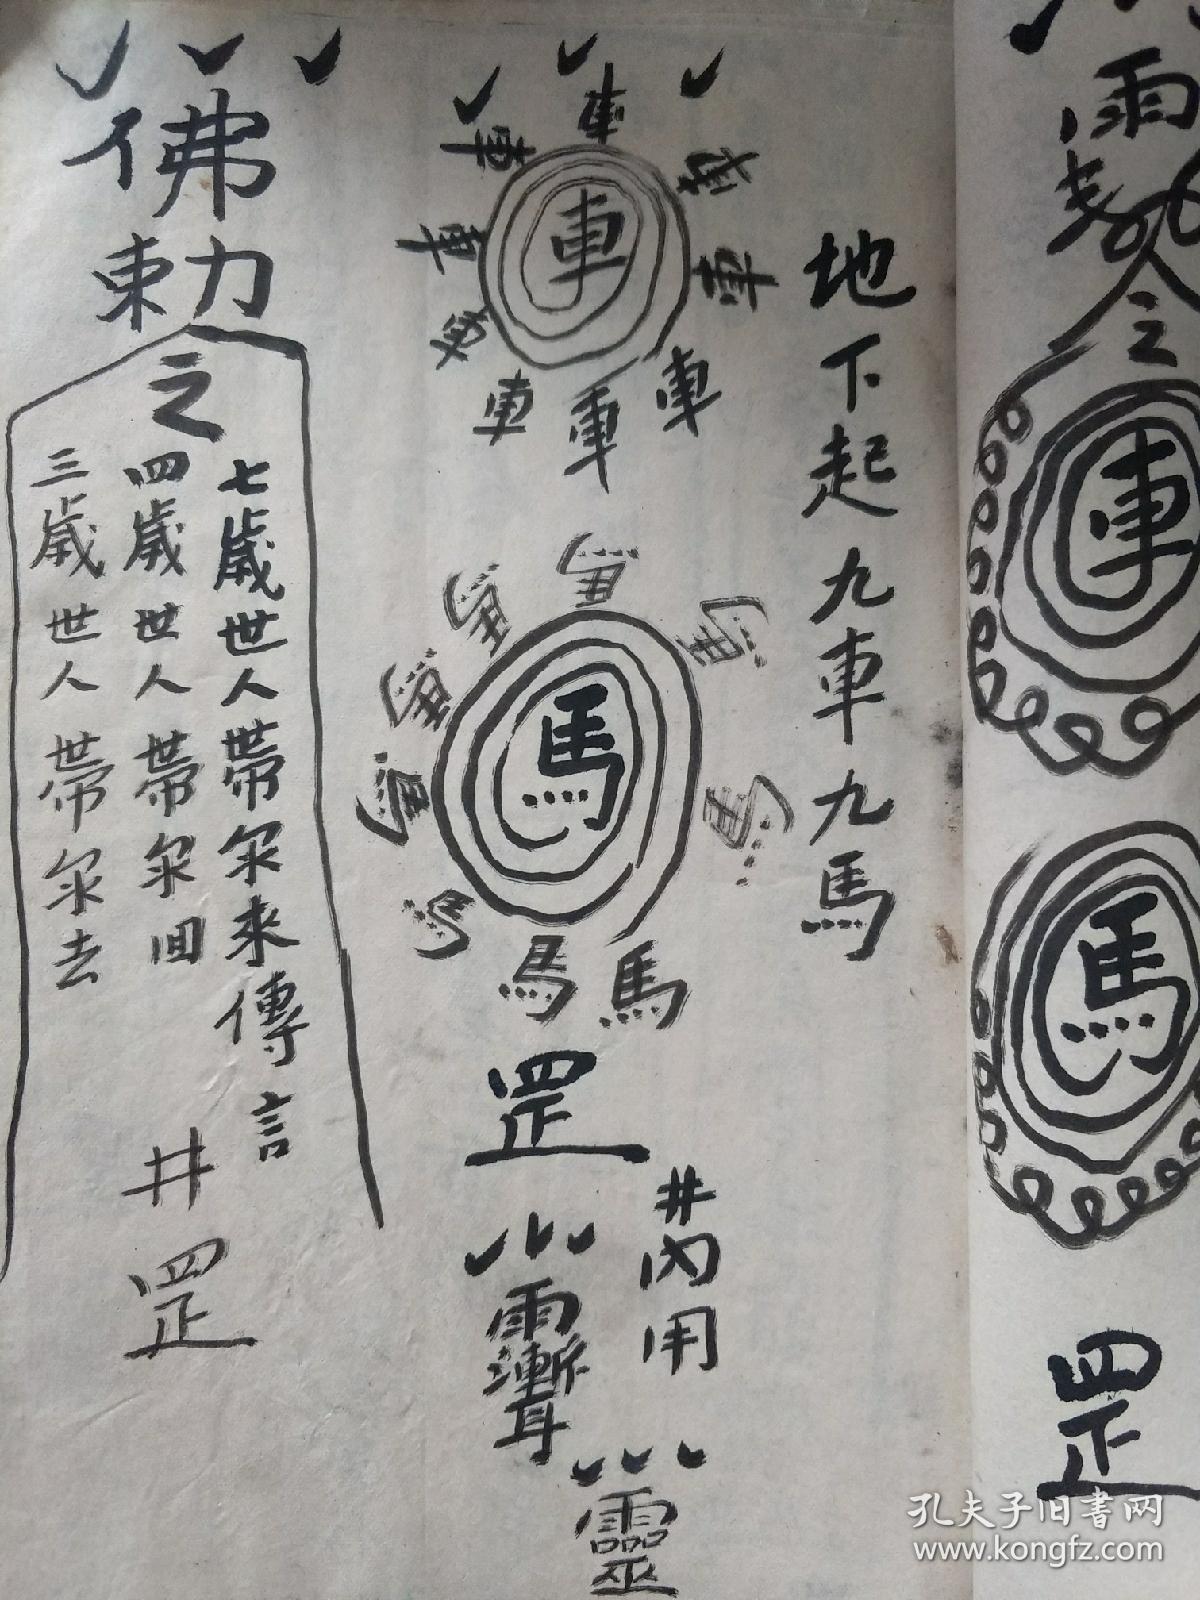 雨
令
之
車
馬
罡
地下起九車九馬
車
車
車
車
車
車
車
車
車
馬
馬
馬
馬
馬
馬
馬
馬
馬
馬
罡
井內用
雨漸耳
靈
佛
勅
之
七歲世人帶尔來傳言
四歲世人帶尔回
三歲世人帶尔去
井
罡
孔夫子旧书网
www.kongfz.com